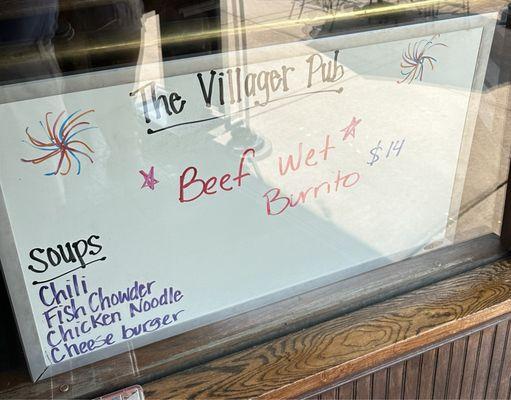 The Villager Pub
Beef Wet
Burrito $14
Soups
Chili
Fish Chowder
Chicken Noodle
Cheese burger